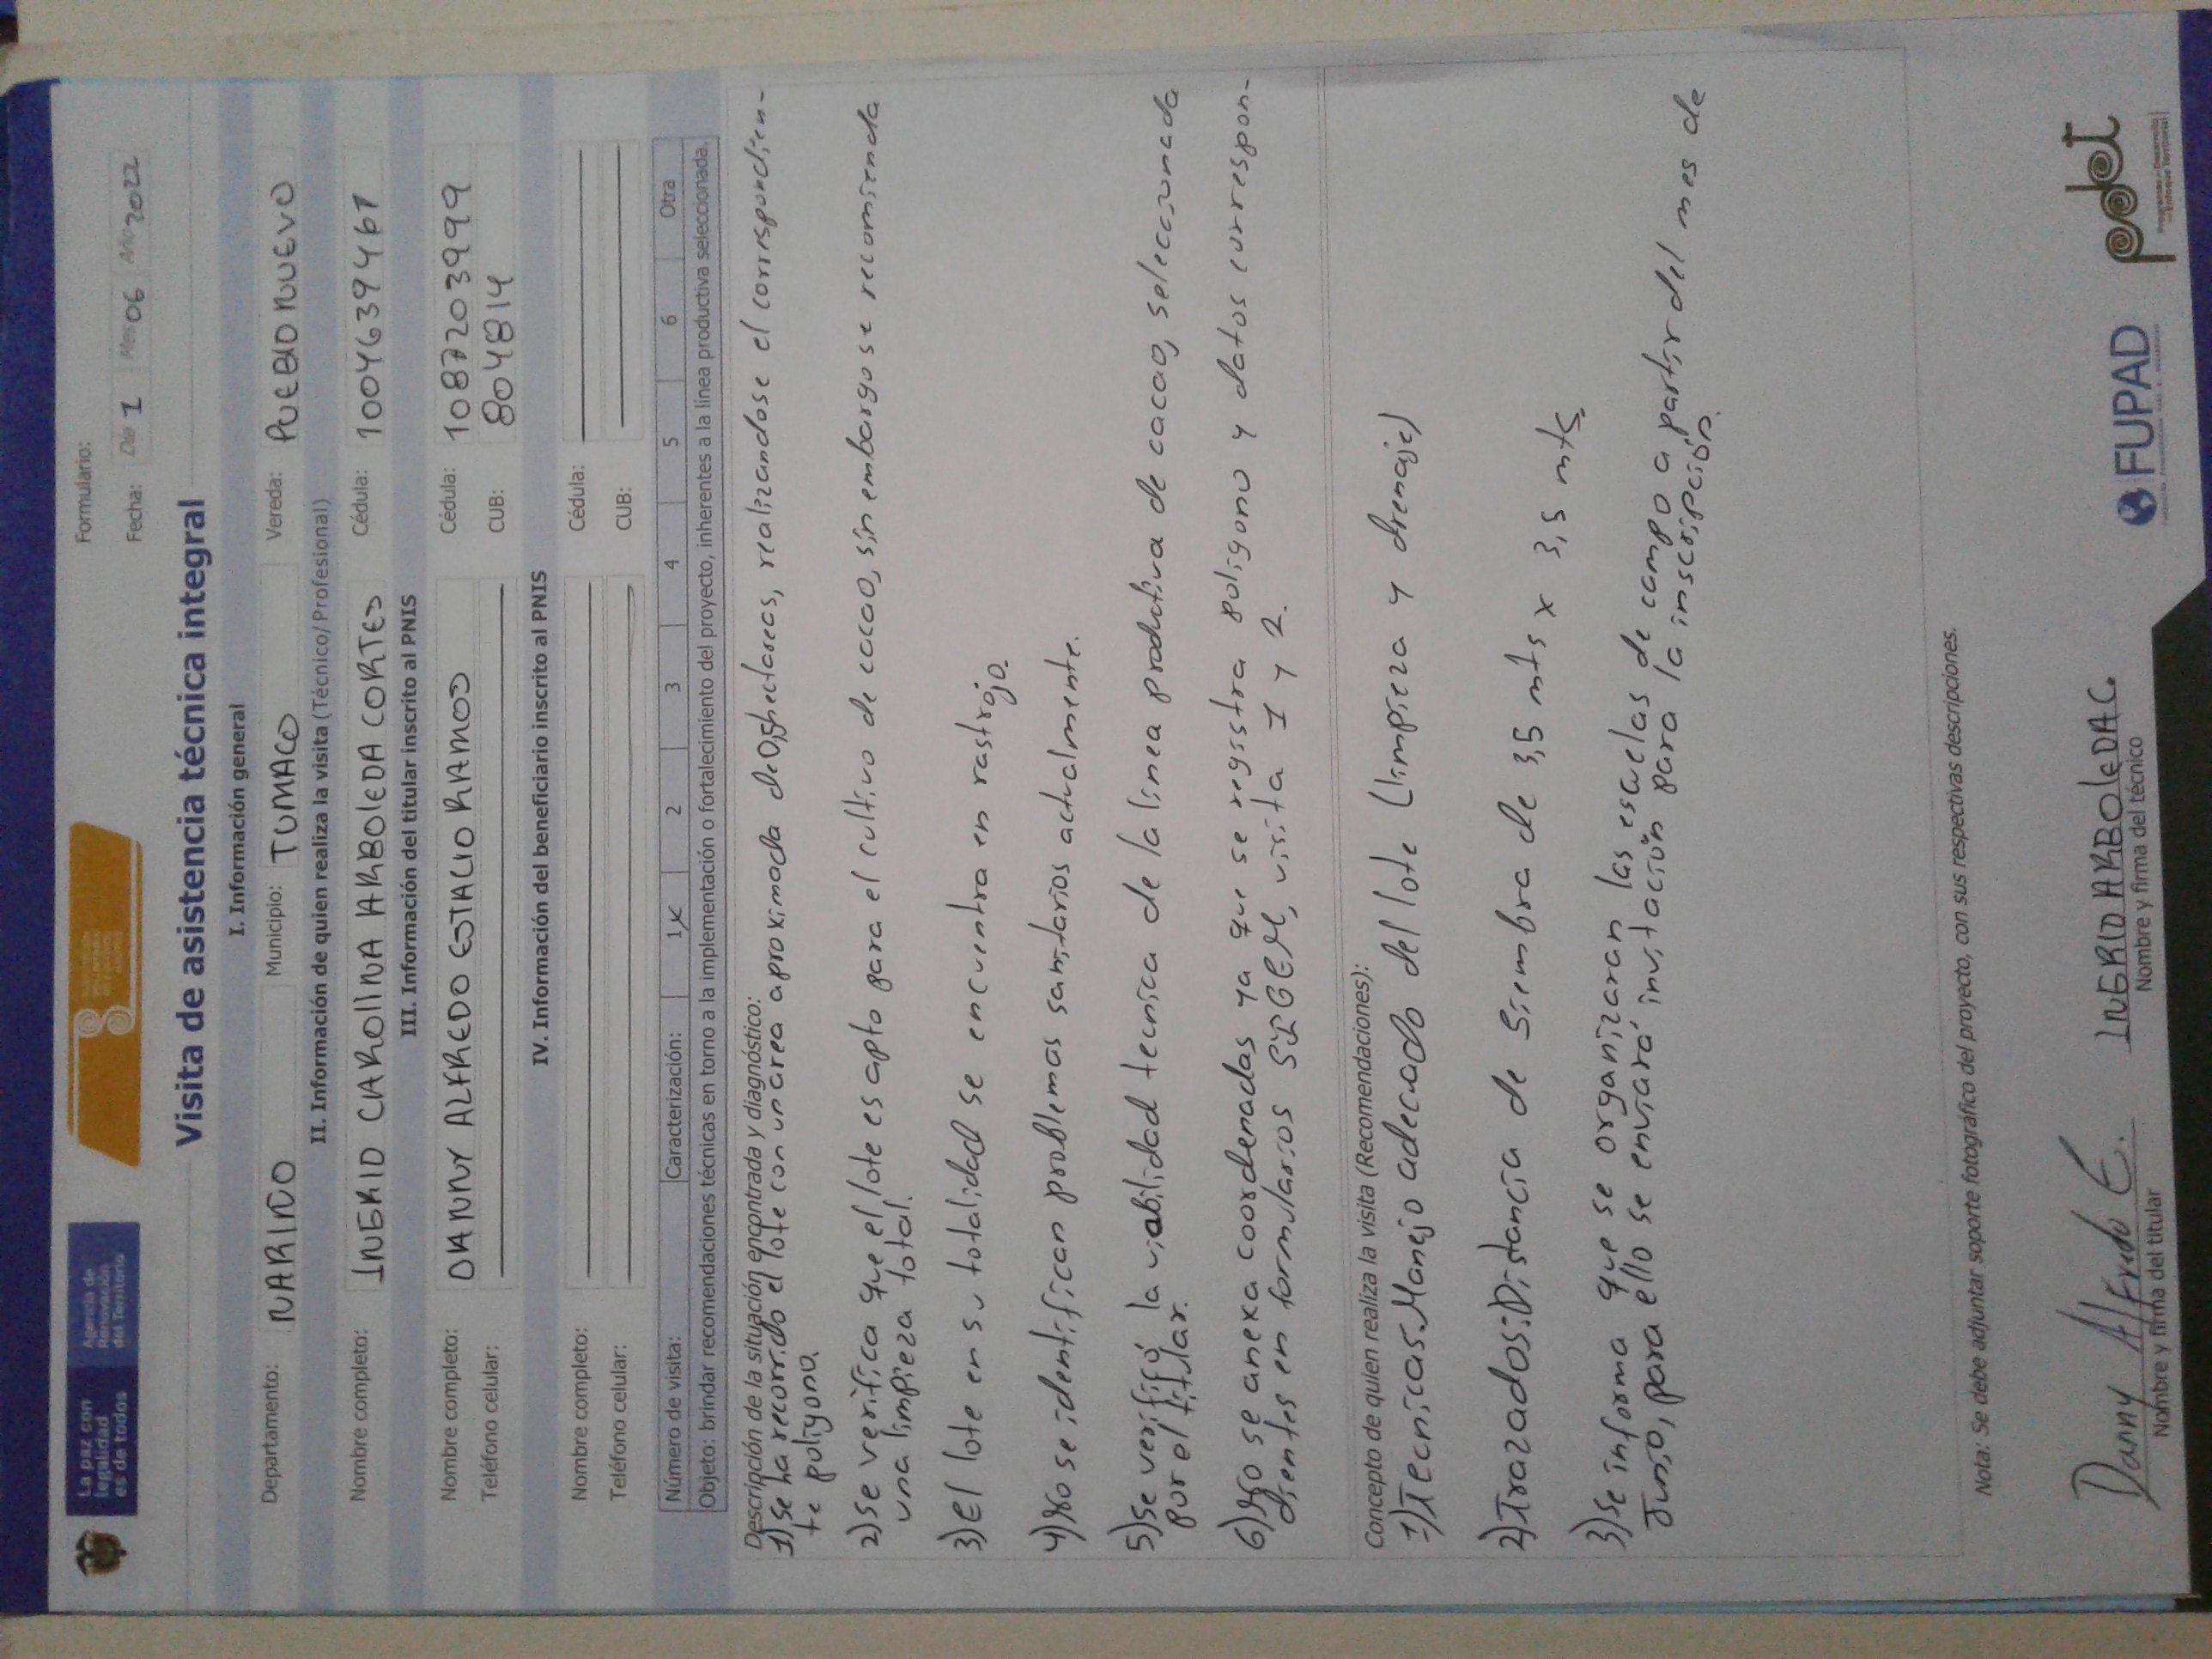 La paz con
legalidad
es de todos
Agencia de
Renovación
del Territorio
Formulario:
Fecha: Día 1 Mes 06 Año 2022
Visita de asistencia técnica integral
I. Información general
Departamento: NARIÑO Municipio: TUMACO Vereda: PUEBLO NUEVO
II. Información de quien realiza la visita (Técnico/Profesional)
Nombre completo: INGRID CAROLINA ARBOLEDA CORTES Cédula: 1004639461
III. Información del titular inscrito al PNIS
Nombre completo: DIANNY ALFREDO ESTACIO RAMOS Cédula: 1087203999
Teléfono celular: CUB: 804814
IV. Información del beneficiario inscrito al PNIS
Nombre completo: Cédula:
Teléfono celular: CUB:
Número de visita: Caracterización: 1 X 2 3 4 5 6 Otra
Objeto: brindar recomendaciones técnicas en torno a la implementación o fortalecimiento del proyecto, inherentes a la línea productiva seleccionada.
Descripción de la situación encontrada y diagnóstico:
1) se ha recorrido el lote con un area aproximada de 0,5 hectareas, realizandose el correspondien-
te poligono.
2) se verifica que el lote es apto para el cultivo de cacao, sin embargo se recomienda
una limpieza total.
3) el lote en su totalidad se encuentra en rastrojo.
4) No se identifican problemas sanitarios actualmente.
5) se verificó la viabilidad tecnica de la linea productiva de cacao, seleccionada
por el titular.
6) No se anexa coordenadas ya que se registra poligono y datos correspon-
dientes en formularios SIGEM, visita 1 y 2.
Concepto de quien realiza la visita (Recomendaciones):
1) Tecnicas: Manejo adecuado del lote (limpieza y drenaje)
2) Trazados: Distancia de siembra de 3,5 mts x 3,5 mts
3) se informa que se organizaran las escuelas de campo a partir del mes de
Junio, para ello se enviará invitación para la inscripción.
Nota: Se debe adjuntar soporte fotográfico del proyecto, con sus respectivas descripciones.
Danny Alfredo E.
Nombre y firma del titular
INGRID ARBOLEDA C.
Nombre y firma del técnico
FUPAD
pdet
Programas de Desarrollo
con Enfoque Territorial